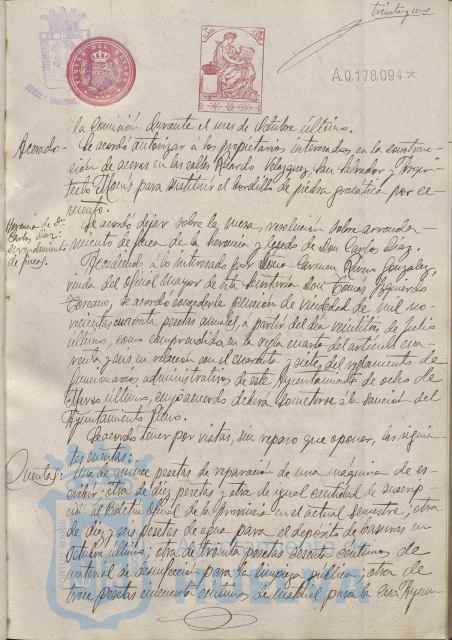 treinta y uno
A.0.178.094*
la Comisión durante el mes de Octubre último.
Acerado.- Se acordó autorizar a los propietarios interesados en la construc-
ción de aceras en las calles Ricardo Velázquez, San Salvador y Arqui-
tecto Monis para sustituir el bordillo de piedra granítica por ce-
mento.
Herencia de Dn
Carlos Díaz:
Arrendamiento
de fincas.
Se acordó dejar sobre la mesa, resolución sobre arrenda-
miento de finca de la herencia y legado de Don Carlos Díaz.
Accediendo a lo interesado por Doña Carmen González,
viuda del Oficial Mayor de esta Don Tomás Izquierdo
se acordó concederle pensión de viudedad de mil no-
vecientas cuarenta pesetas anuales, a partir del día veintitrés de julio
último, como comprendida en la regla cuarta del artículo cua-
renta y seis en relación con el cuarenta y siete del reglamento de
funcionarios administrativos de este Ayuntamiento de ocho de
Marzo último, cuyo acuerdo deberá someterse a la sanción del
Ayuntamiento Pleno.
Se acordó tener por vistas, sin reparo que oponer, las siguien-
tes cuentas:
Cuentas: Una de quince pesetas de reparación de una máquina de es-
cribir; otra de diez pesetas y otra de igual cantidad de suscrip-
ción al Boletín Oficial de la Provincia en el actual semestre; otra
de diez y seis pesetas de agua para el depósito de basuras en
Octubre último; otra de treinta pesetas sesenta céntimos de
material de desinfección para la limpieza pública; otra de
trece pesetas cincuenta céntimos de material para la Casa Ayun-